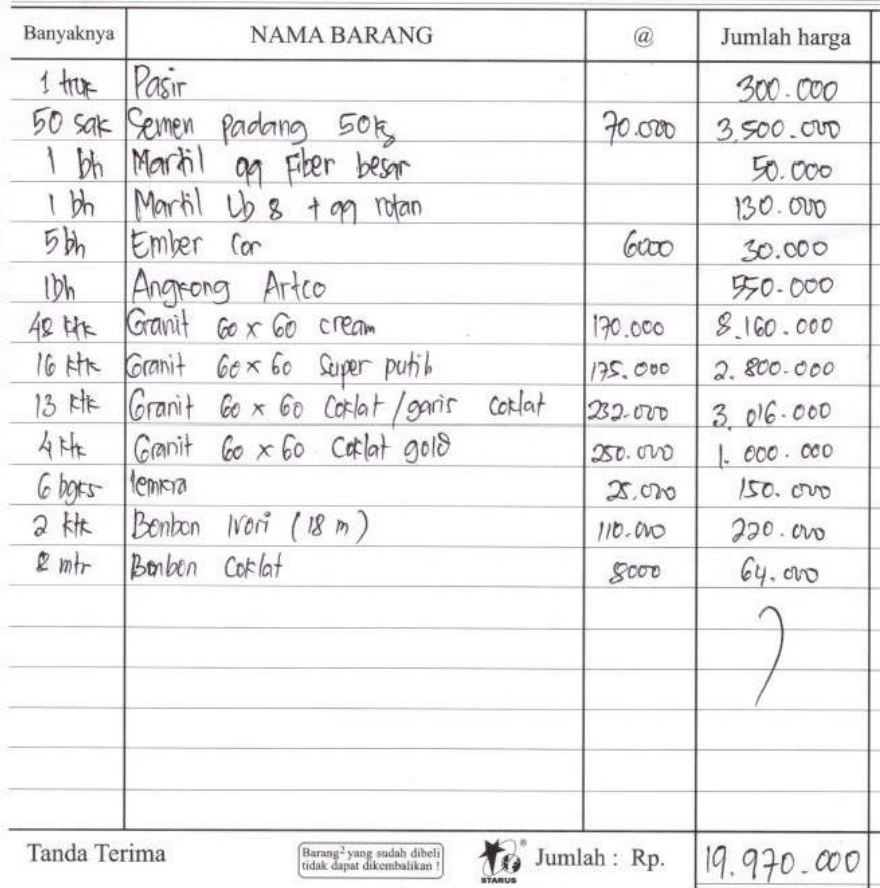 Banyaknya NAMA BARANG @ Jumlah harga
1 truk Pasir 300.000
50 sak Semen Padang 50kg 70.000 3.500.000
1 bh Martil gg Fiber besar 50.000
1 bh Martil Lb 8 + gg rotan 130.000
5 bh Ember Cor 6000 30.000
1bh Angkong Artco 550.000
48 ktk Granit 60 x 60 cream 170.000 8.160.000
16 ktk Granit 60 x 60 Super putih 175.000 2.800.000
13 ktk Granit 60 x 60 Coklat/garis coklat 232.000 3.016.000
4 ktk Granit 60 x 60 Coklat gold 250.000 1.000.000
6 bgks lemkra 25.000 150.000
2 ktk Bonbon Ivori (18 m) 110.000 220.000
8 mtr Bonbon Coklat 8000 64.000
Tanda Terima Barang² yang sudah dibeli tidak dapat dikembalikan ! STARUS Jumlah : Rp. 19.970.000